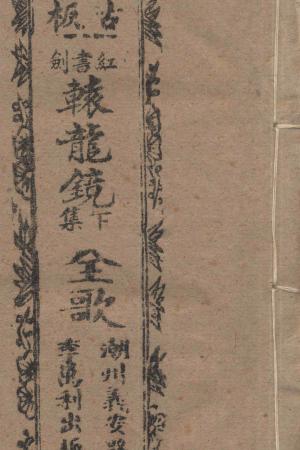 古板
紅書劍
轅龍鏡
下集
全歌
潮州義安路
李萬利出板